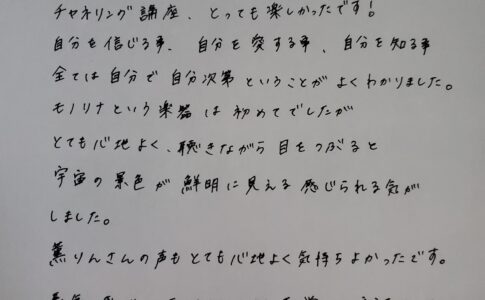 チャネリング講座、とっても楽しかったです!
自分を信じる事、自分を愛する事、自分を知る事
全ては自分で自分次第ということがよくわかりました。
モノリナという楽器は初めてでしたが
とても心地よく、聴きながら目をつぶると
宇宙の景色が鮮明に見える感じられる気が
しました。
薫りんさんの声もとても心地よく気持ちよかったです。